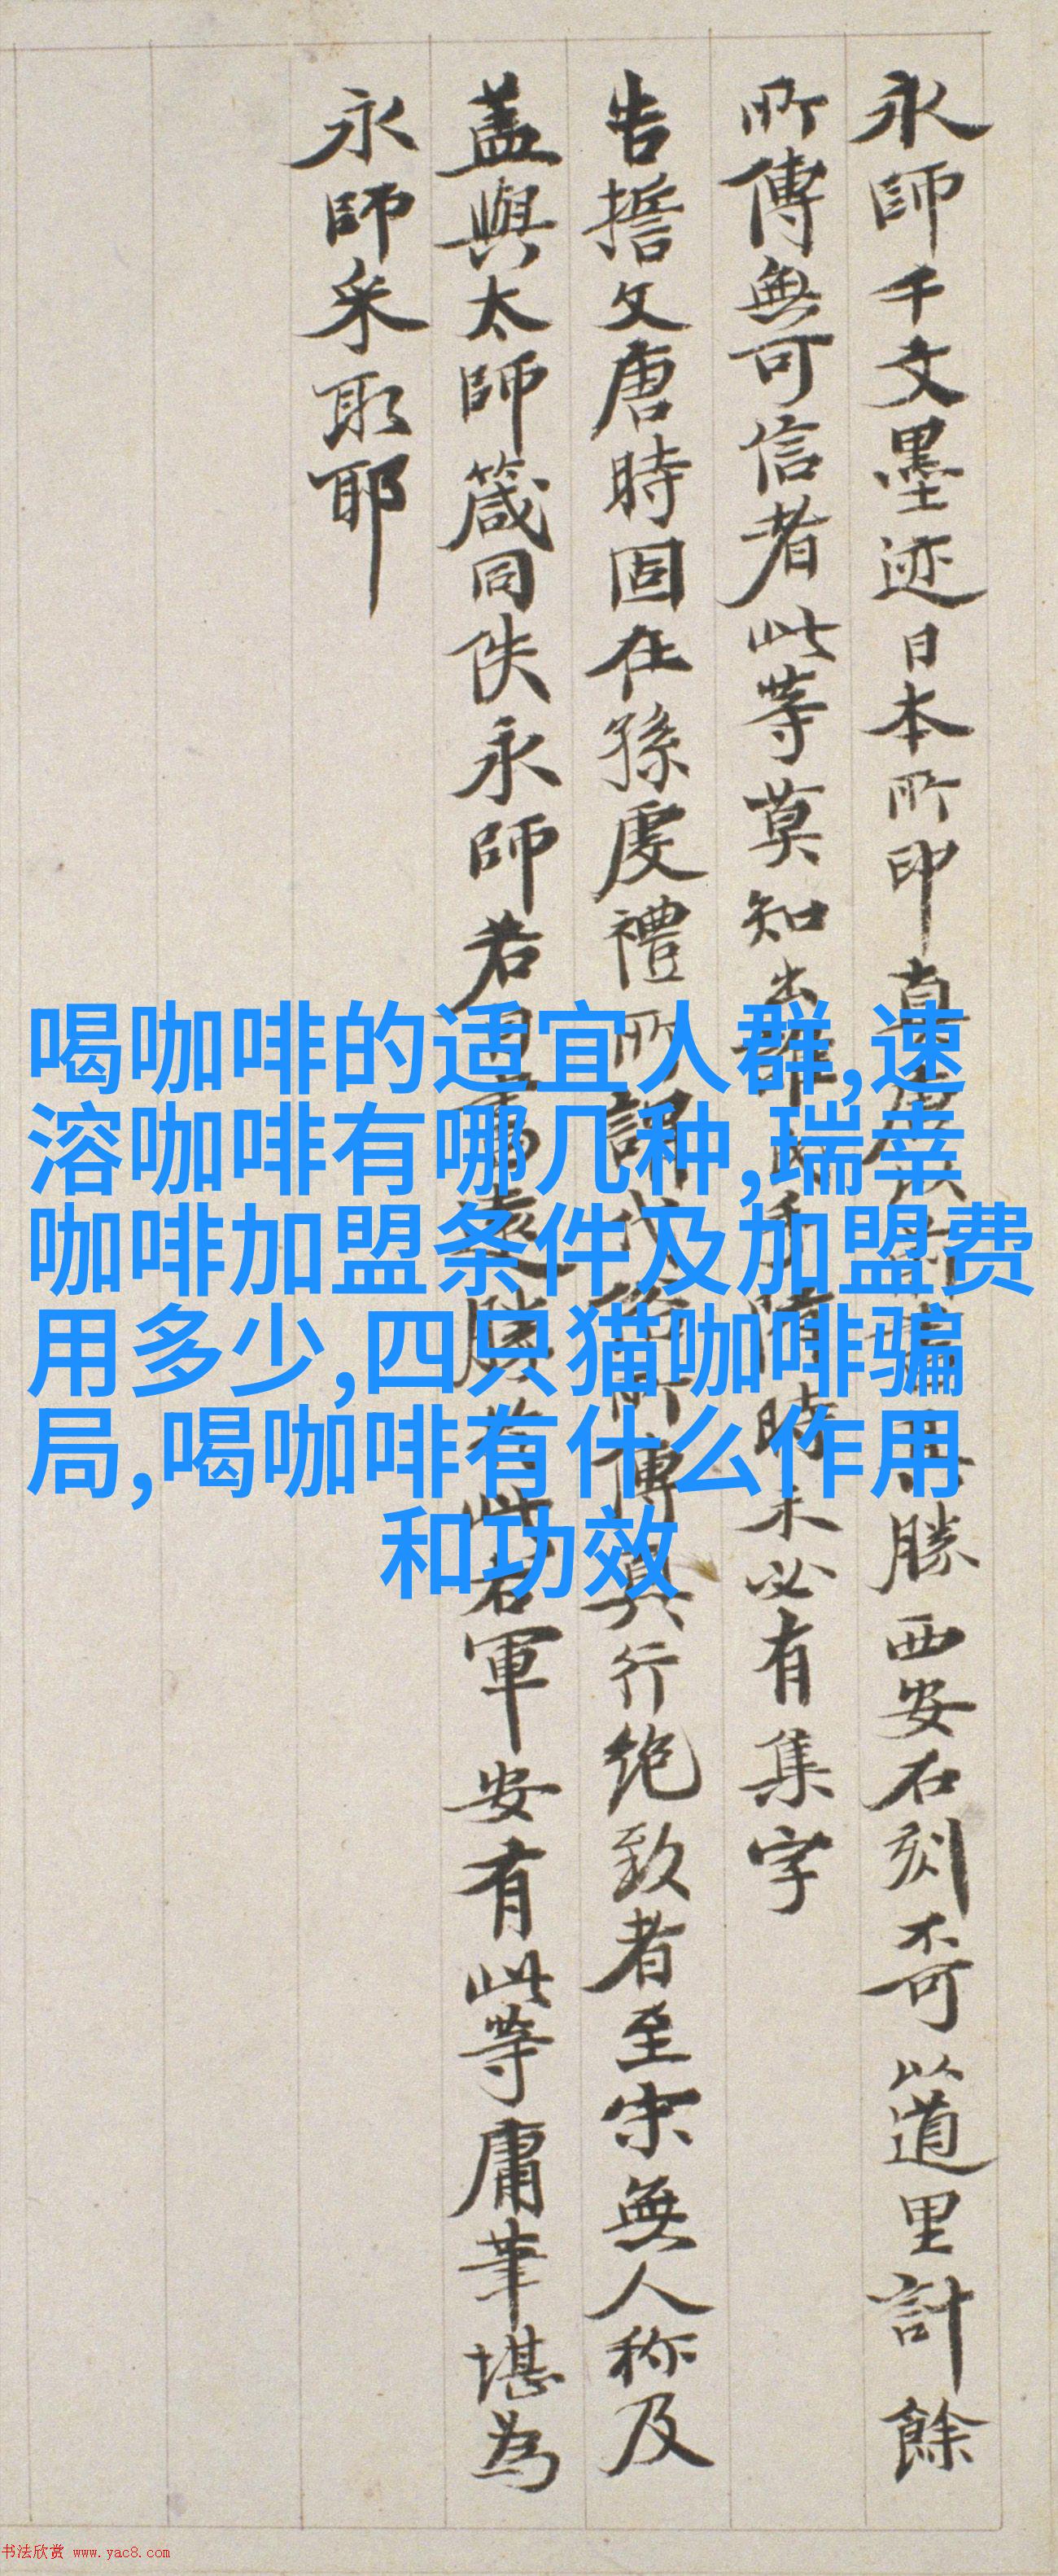 永師千文墨迹日本所印真
勝西安石刻奇以道里計餘
所傳無可信者此等莫知出
時未必有集字
告誓文唐時固在孫虔禮所謂代
所傳真行绝致者至宋無人称及
盖與太師箴同佚永師若
右軍安有此等庸筆堪為
永師采取耶
喝咖啡的适宜人群,速
溶咖啡有哪几种,瑞幸
咖啡加盟条件及加盟费
用多少,四只猫咖啡骗
局,喝咖啡有什么作用
和功效
书法欣赏 www.yac8.com